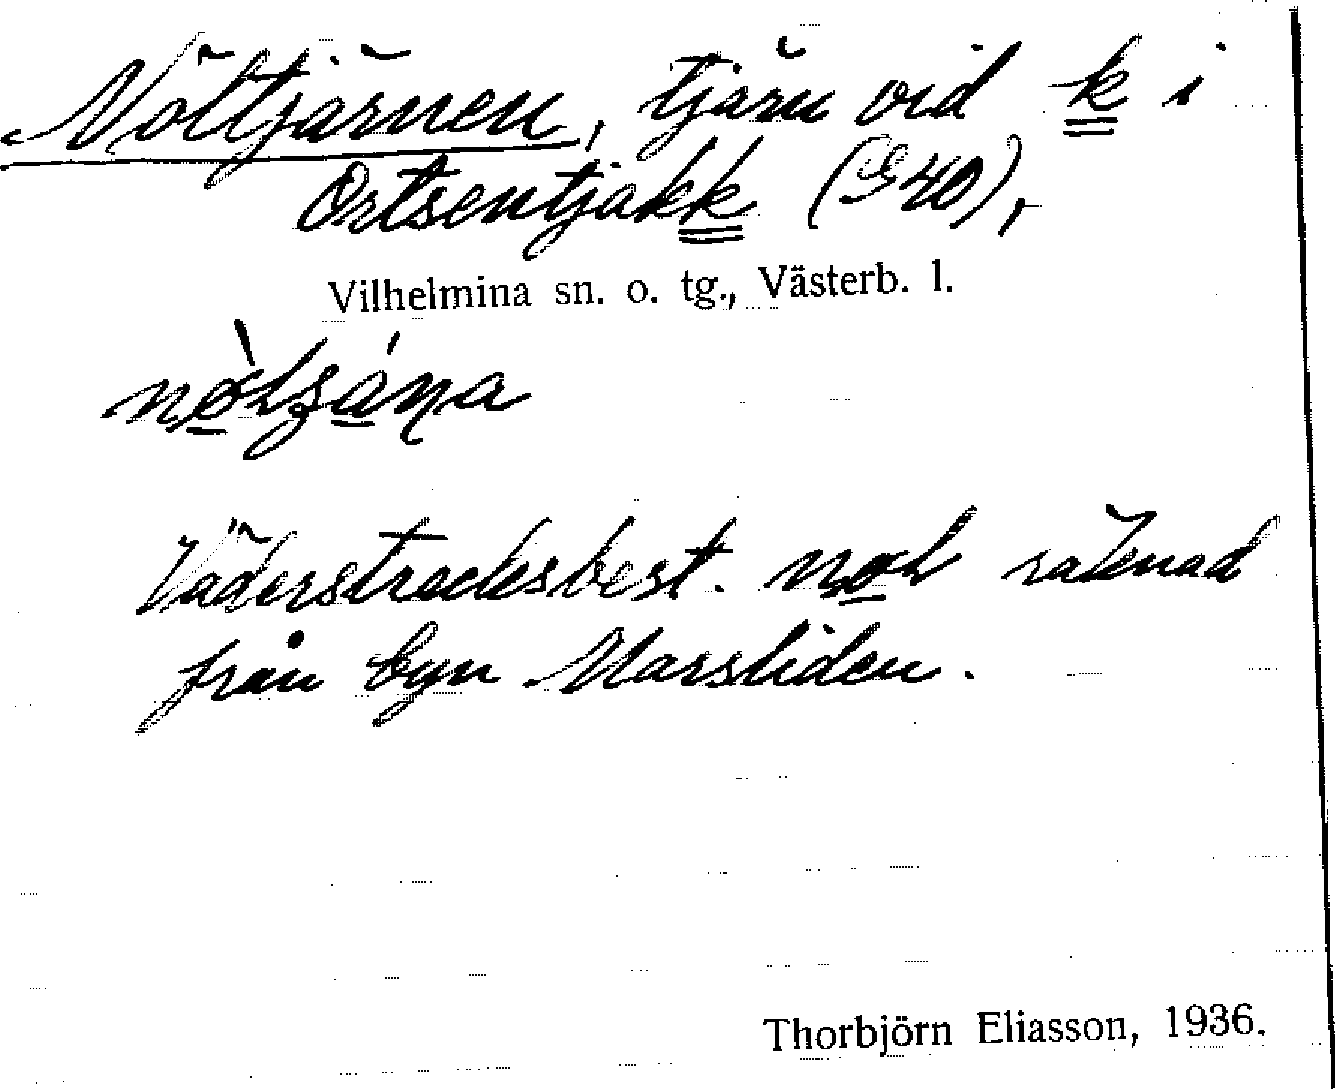 Nöltjärnen, tjärn vid k i
Ortsentjakk (G 40),
Vilhelmina sn. o. tg., Västerb. l.
Väderstrecksbest. nol räknad
från byn Marsliden.
Thorbjörn Eliasson, 1936.